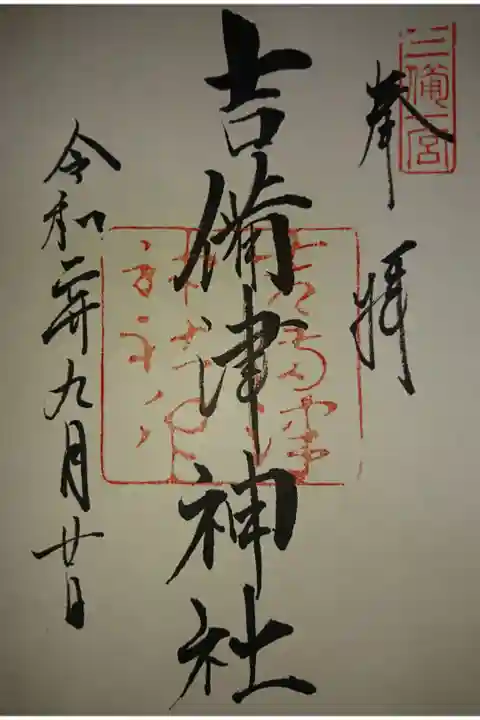 三備一宮
奉拝
吉備津神社
令和二年九月廿日